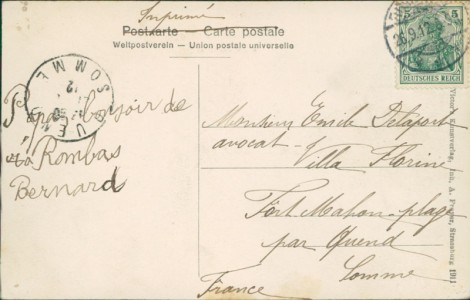 Imprimé
Postkarte — Carte postale
Weltpostverein – Union postale universelle
5 5
DEUTSCHES REICH
QUEND
SOMME
Papa bonjour de
Rombas
Bernard
Monsieur Emile Delaport
avocat-
Villa Florine
Fort Mahon-plage
par Quend
Somme
France
Kunstverlag, Inh. A. Strassburg 1911